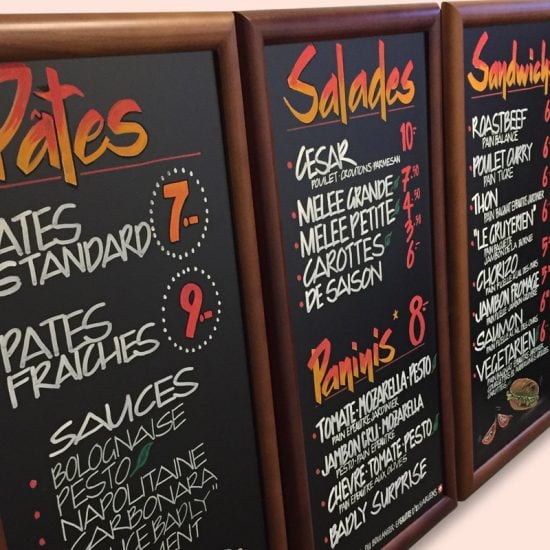 Pâtes
PATES
STANDARD
7.-
PATES
FRAICHES
9.-
SAUCES
BOLOGNAISE
PESTO
NAPOLITAINE
CARBONARA
BADLY"
Salades
CESAR 10.-
POULET·CROUTONS·PARMESAN
MELEE GRANDE 7.50
MELEE PETITE 4.50
CAROTTES 3.50
DE SAISON 6.-
Paninis* 8.-
TOMATE·MOZARELLA·PESTO
PAIN EPEAUTRE JARDINIER
JAMBON CRU·MOZARELLA
PESTO·PAIN EPEAUTRE
CHEVRE·TOMATE·PESTO
PAIN EPEAUTRE AUX OLIVES
BADLY SURPRISE
Sandwich
ROASTBEEF
PAIN BALANCE
POULET CURRY
PAIN TIGRE
THON
PAIN BAGUETTE EPEAUTRE JARDINIER
"LE GRUYERIEN"
PAIN BAGUETTE
JAMBON DE LA BORNE
CHORIZO
JAMBON FROMAGE
SAUMON
VEGETARIEN